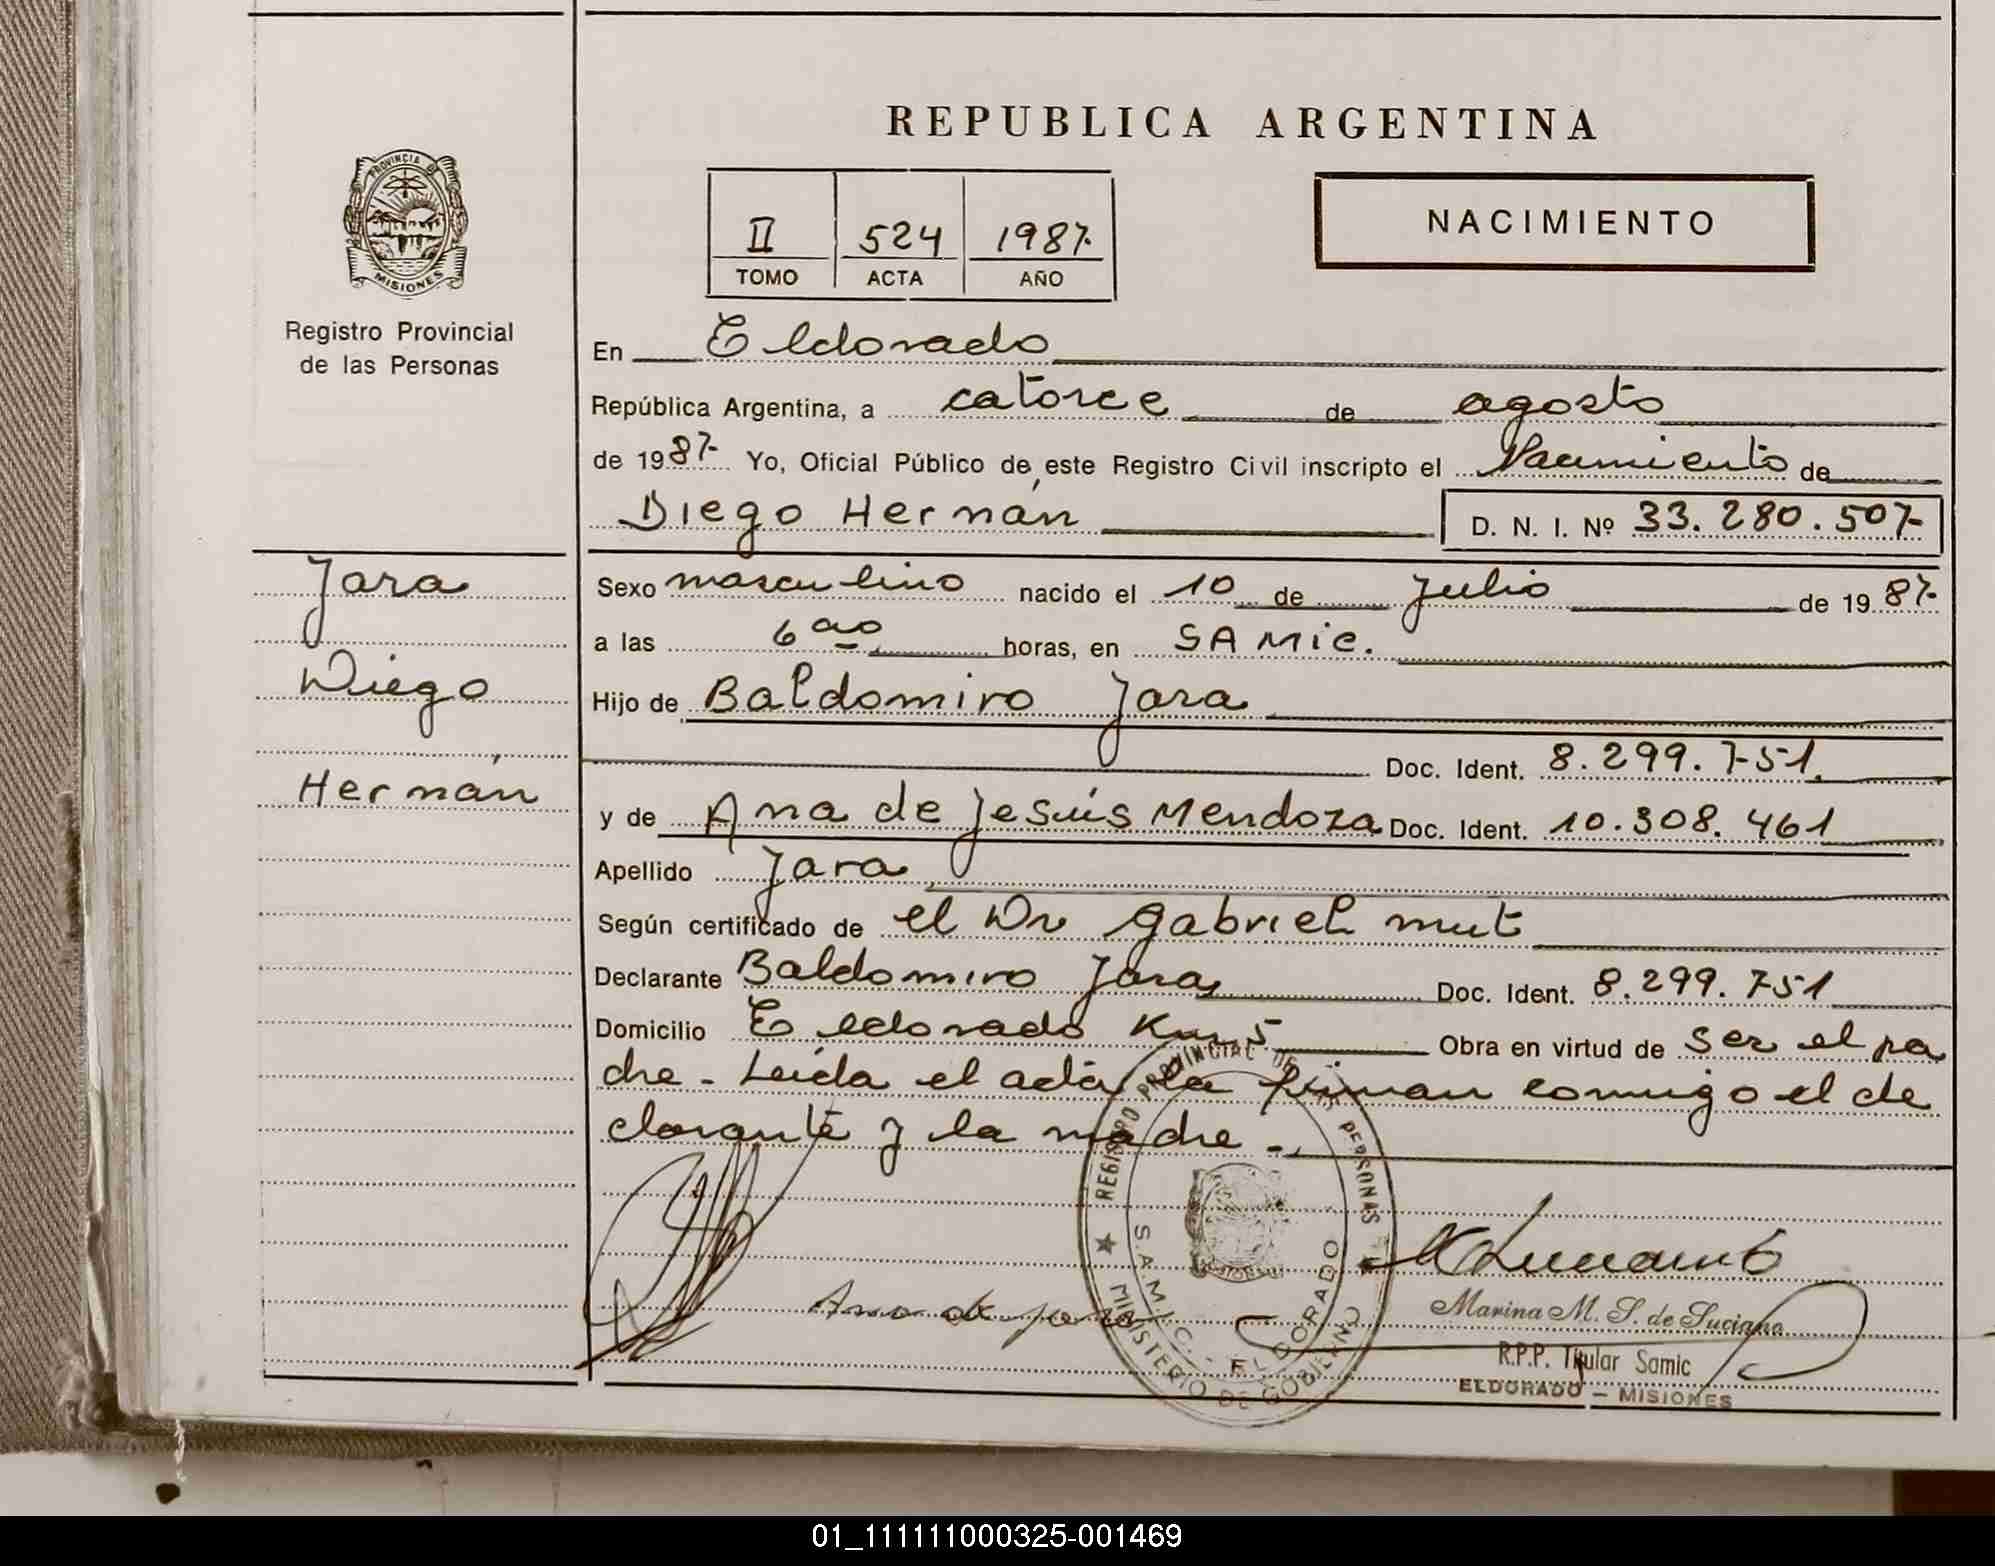 REPUBLICA ARGENTINA
PROVINCIA DE
MISIONES
Registro Provincial
de las Personas
II 524 1987.
TOMO ACTA AÑO
NACIMIENTO
En Eldorado
República Argentina, a catorce de agosto
de 1987. Yo, Oficial Público de este Registro Civil inscripto el Nacimiento de
Diego Hernán D. N. I. Nº 33.280.507-
Jara
Diego
Hernán
Sexo masculino nacido el 10 de Julio de 1987-
a las 6 00 horas, en SAMIC.
Hijo de Baldomiro Jara
Doc. Ident. 8.299.751.
y de Ana de Jesús Mendoza Doc. Ident. 10.308.461
Apellido Jara
Según certificado de el Dr Gabriel Mut
Declarante Baldomiro Jara Doc. Ident. 8.299.751
Domicilio Eldorado Km 5 Obra en virtud de ser el pa
dre - Leída el acta, la firman conmigo el de
clarante y la madre -
REGISTRO PROVINCIAL DE LAS PERSONAS
MINISTERIO DE GOBIERNO
S.A.M.I.C. - ELDORADO
Ana de Jara
Marina M. S. de Luciano
R.P.P. Titular Samic
ELDORADO - MISIONES
01_111111000325-001469